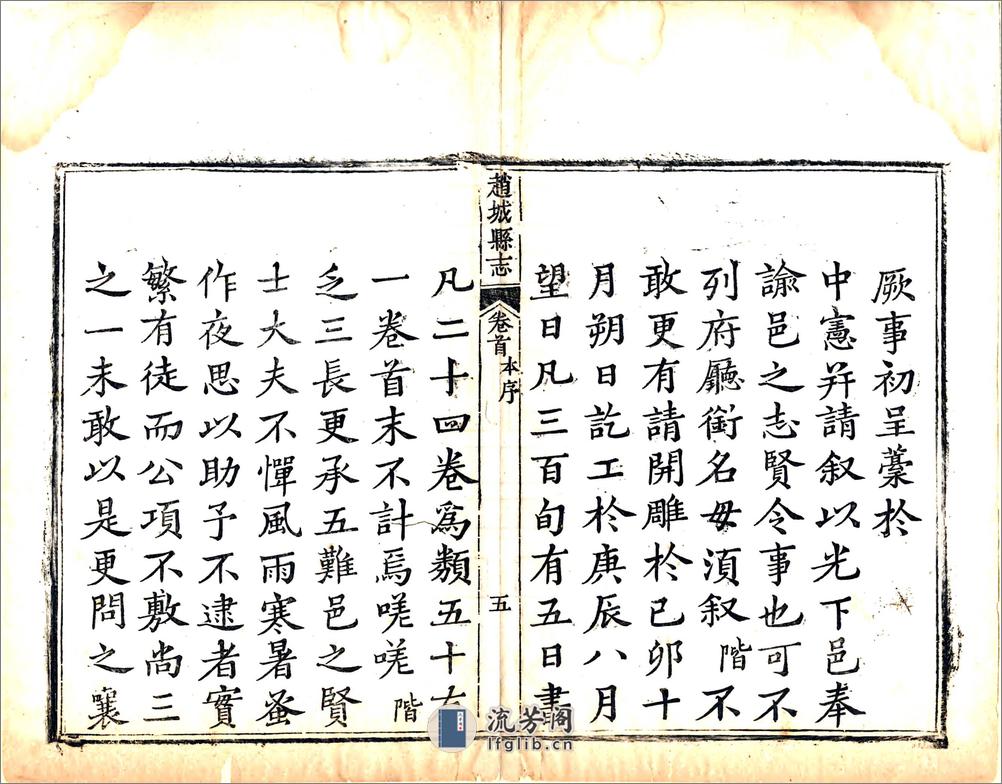 厥事初呈藁於
中憲并請叙以光下邑奉
諭邑之志賢令事也可不
列府廳銜名毋須叙階不
敢更有請開雕於己卯十
月朔日訖工於庚辰八月
望日凡三百旬有五日書
趙城縣志
卷首 本序
五
凡二十四卷爲類五十有
一卷首末不計焉嗟嗟階
乏三長更承五難邑之賢
士大夫不憚風雨寒暑蚤
作夜思以助予不逮者實
繁有徒而公項不敷尚三
之一未敢以是更問之襄
流芳阁
lfglib.cn